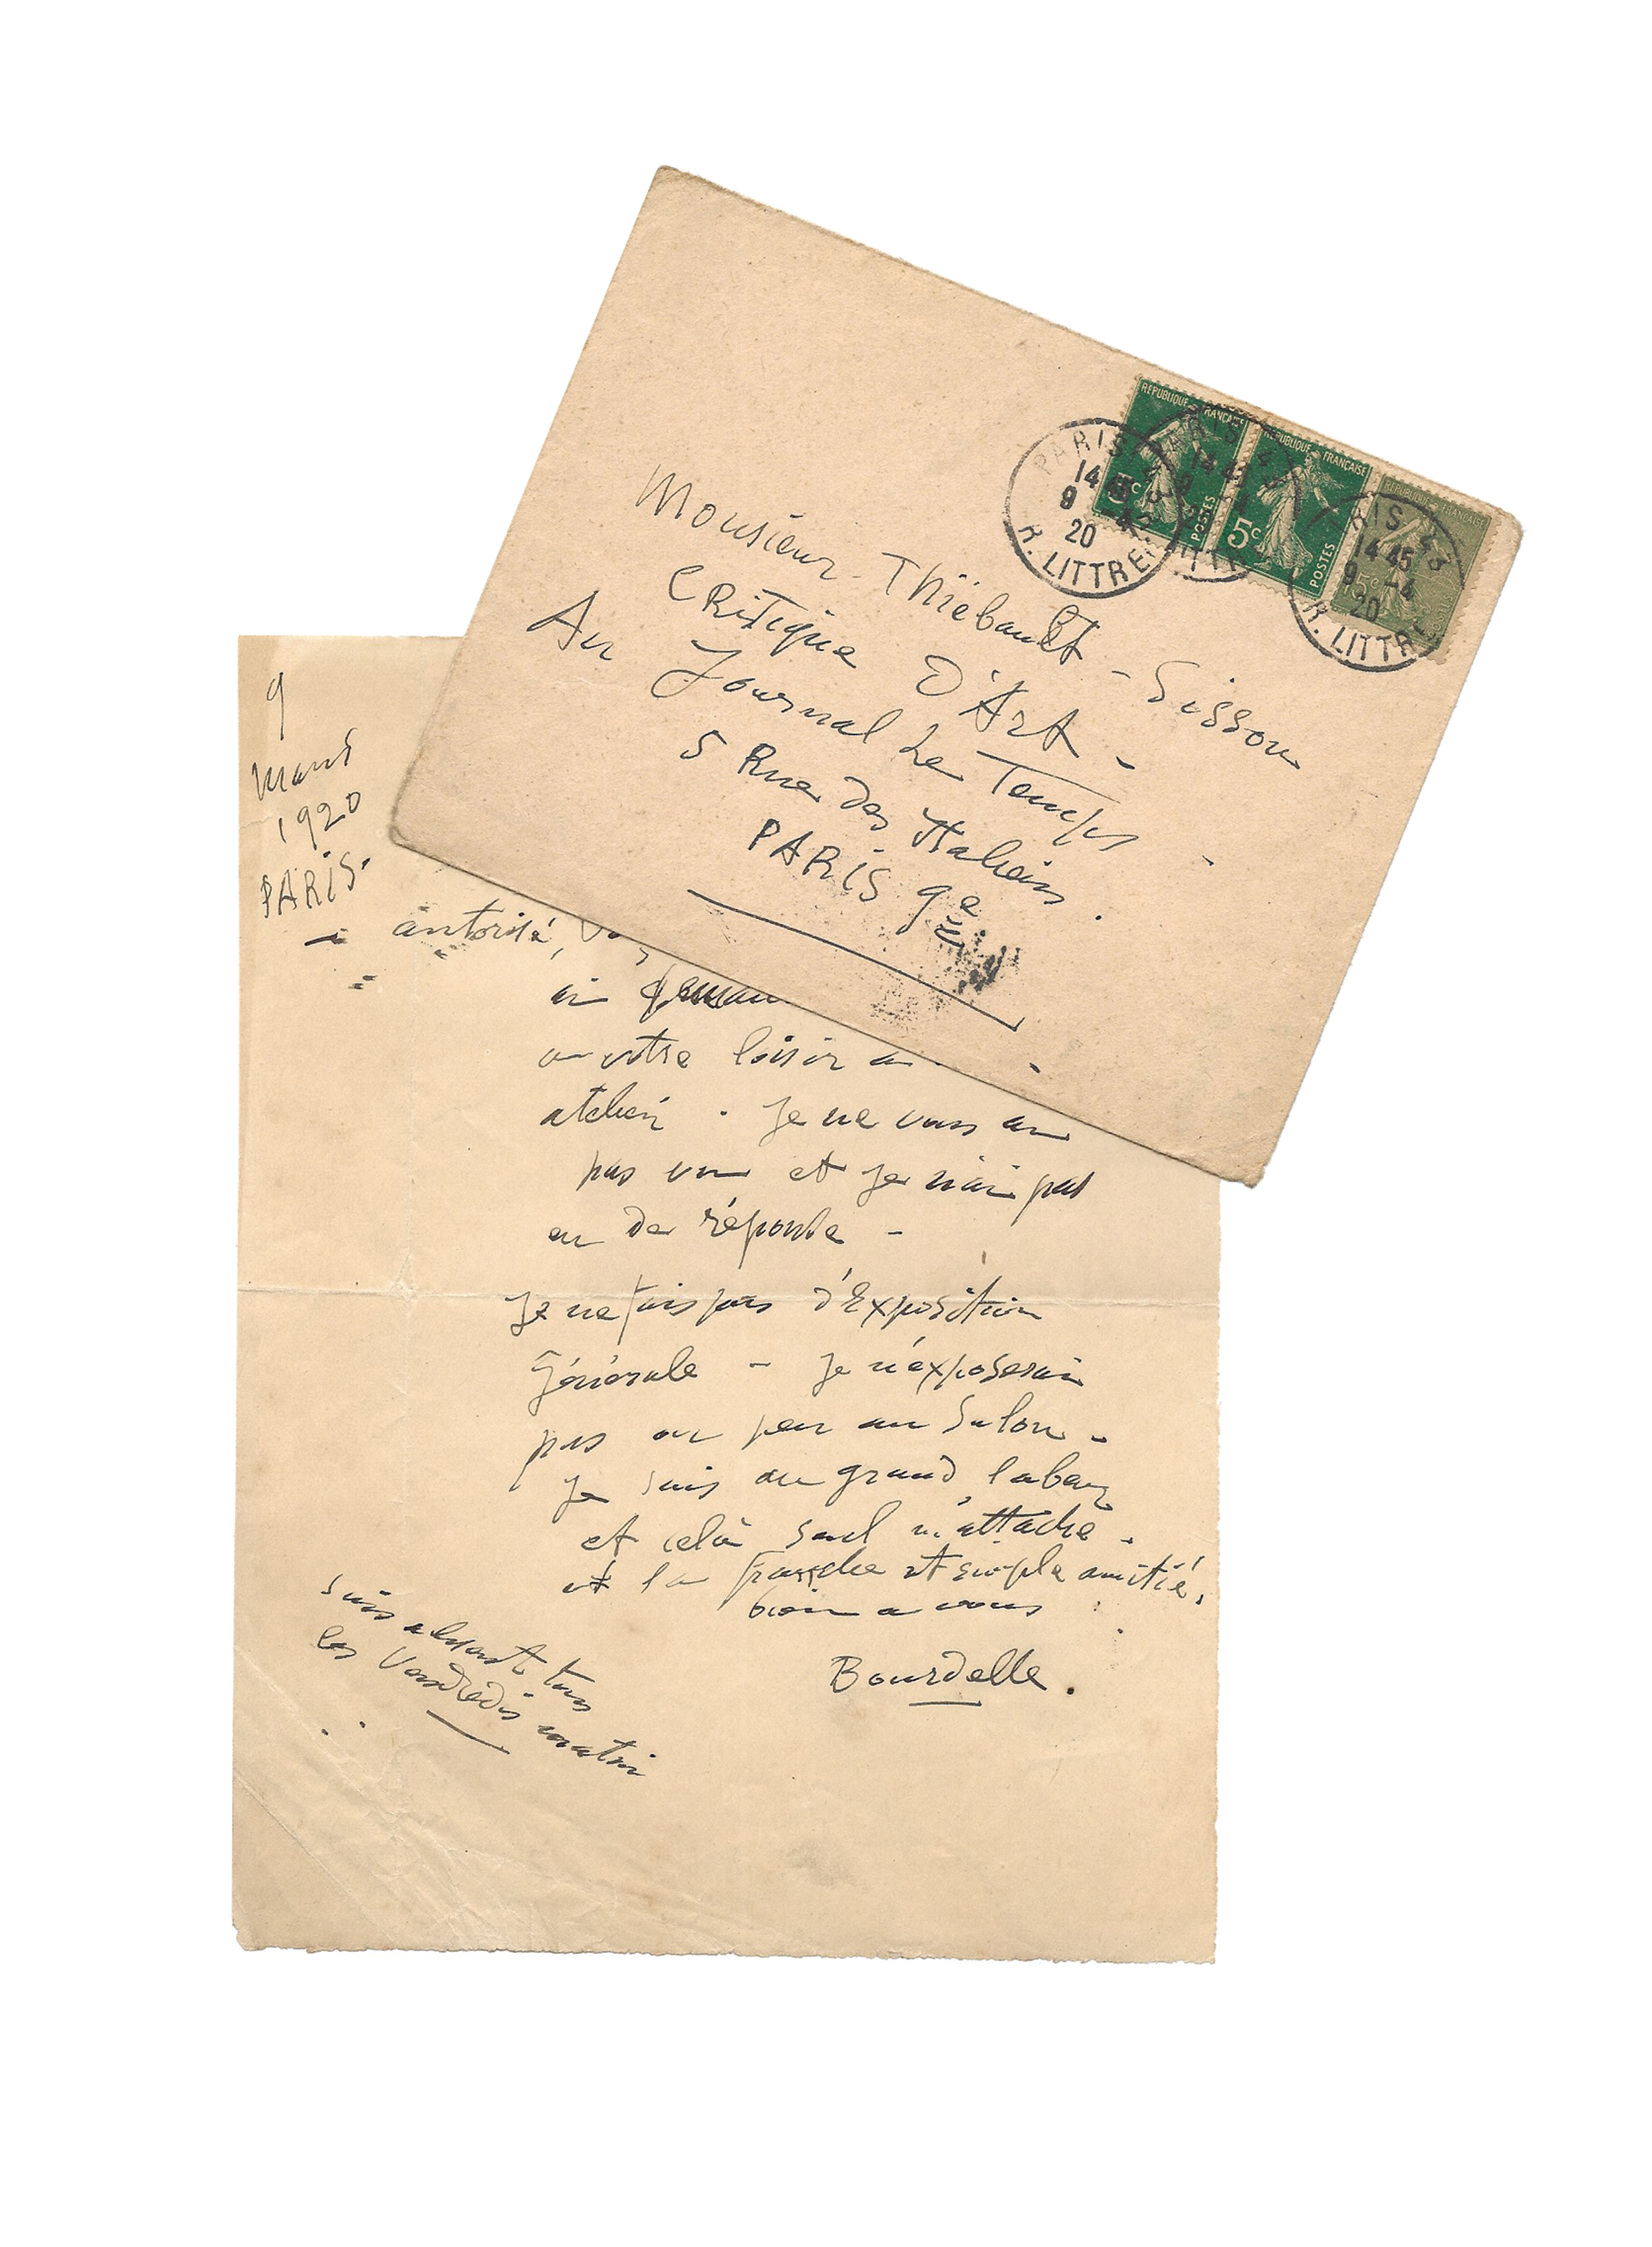 Monsieur Thiébault-Sisson
CRitique D'Art -
Au Journal Le Temps -
5 Rue des Italiens.
PARiS 9e
REPUBLIQUE FRANÇAISE
5c
POSTES
REPUBLIQUE FRANÇAISE
5c
POSTES
REPUBLIQUE FRANÇAISE
15c
PARIS
14 45
9 -4
20
R. LITTRÉ
PARIS
14 45
PARIS
14 45
9 -4
20
R. LITTRÉ
9
Mars
1920
PARiS-
autorité,
ai
a votre loisir
atelier. Je ne vous ai
pas vu et je n'ai pas
eu de réponse -
Je ne fais pas d'Exposition
Générale - je n'exposerai
pas ou peu au Salon -
Je suis au grand labeur
et celà seul m'attache.
et la franche et simple amitié.
bien a vous
Bourdelle.
Suis absent tous
les Vendredis matin